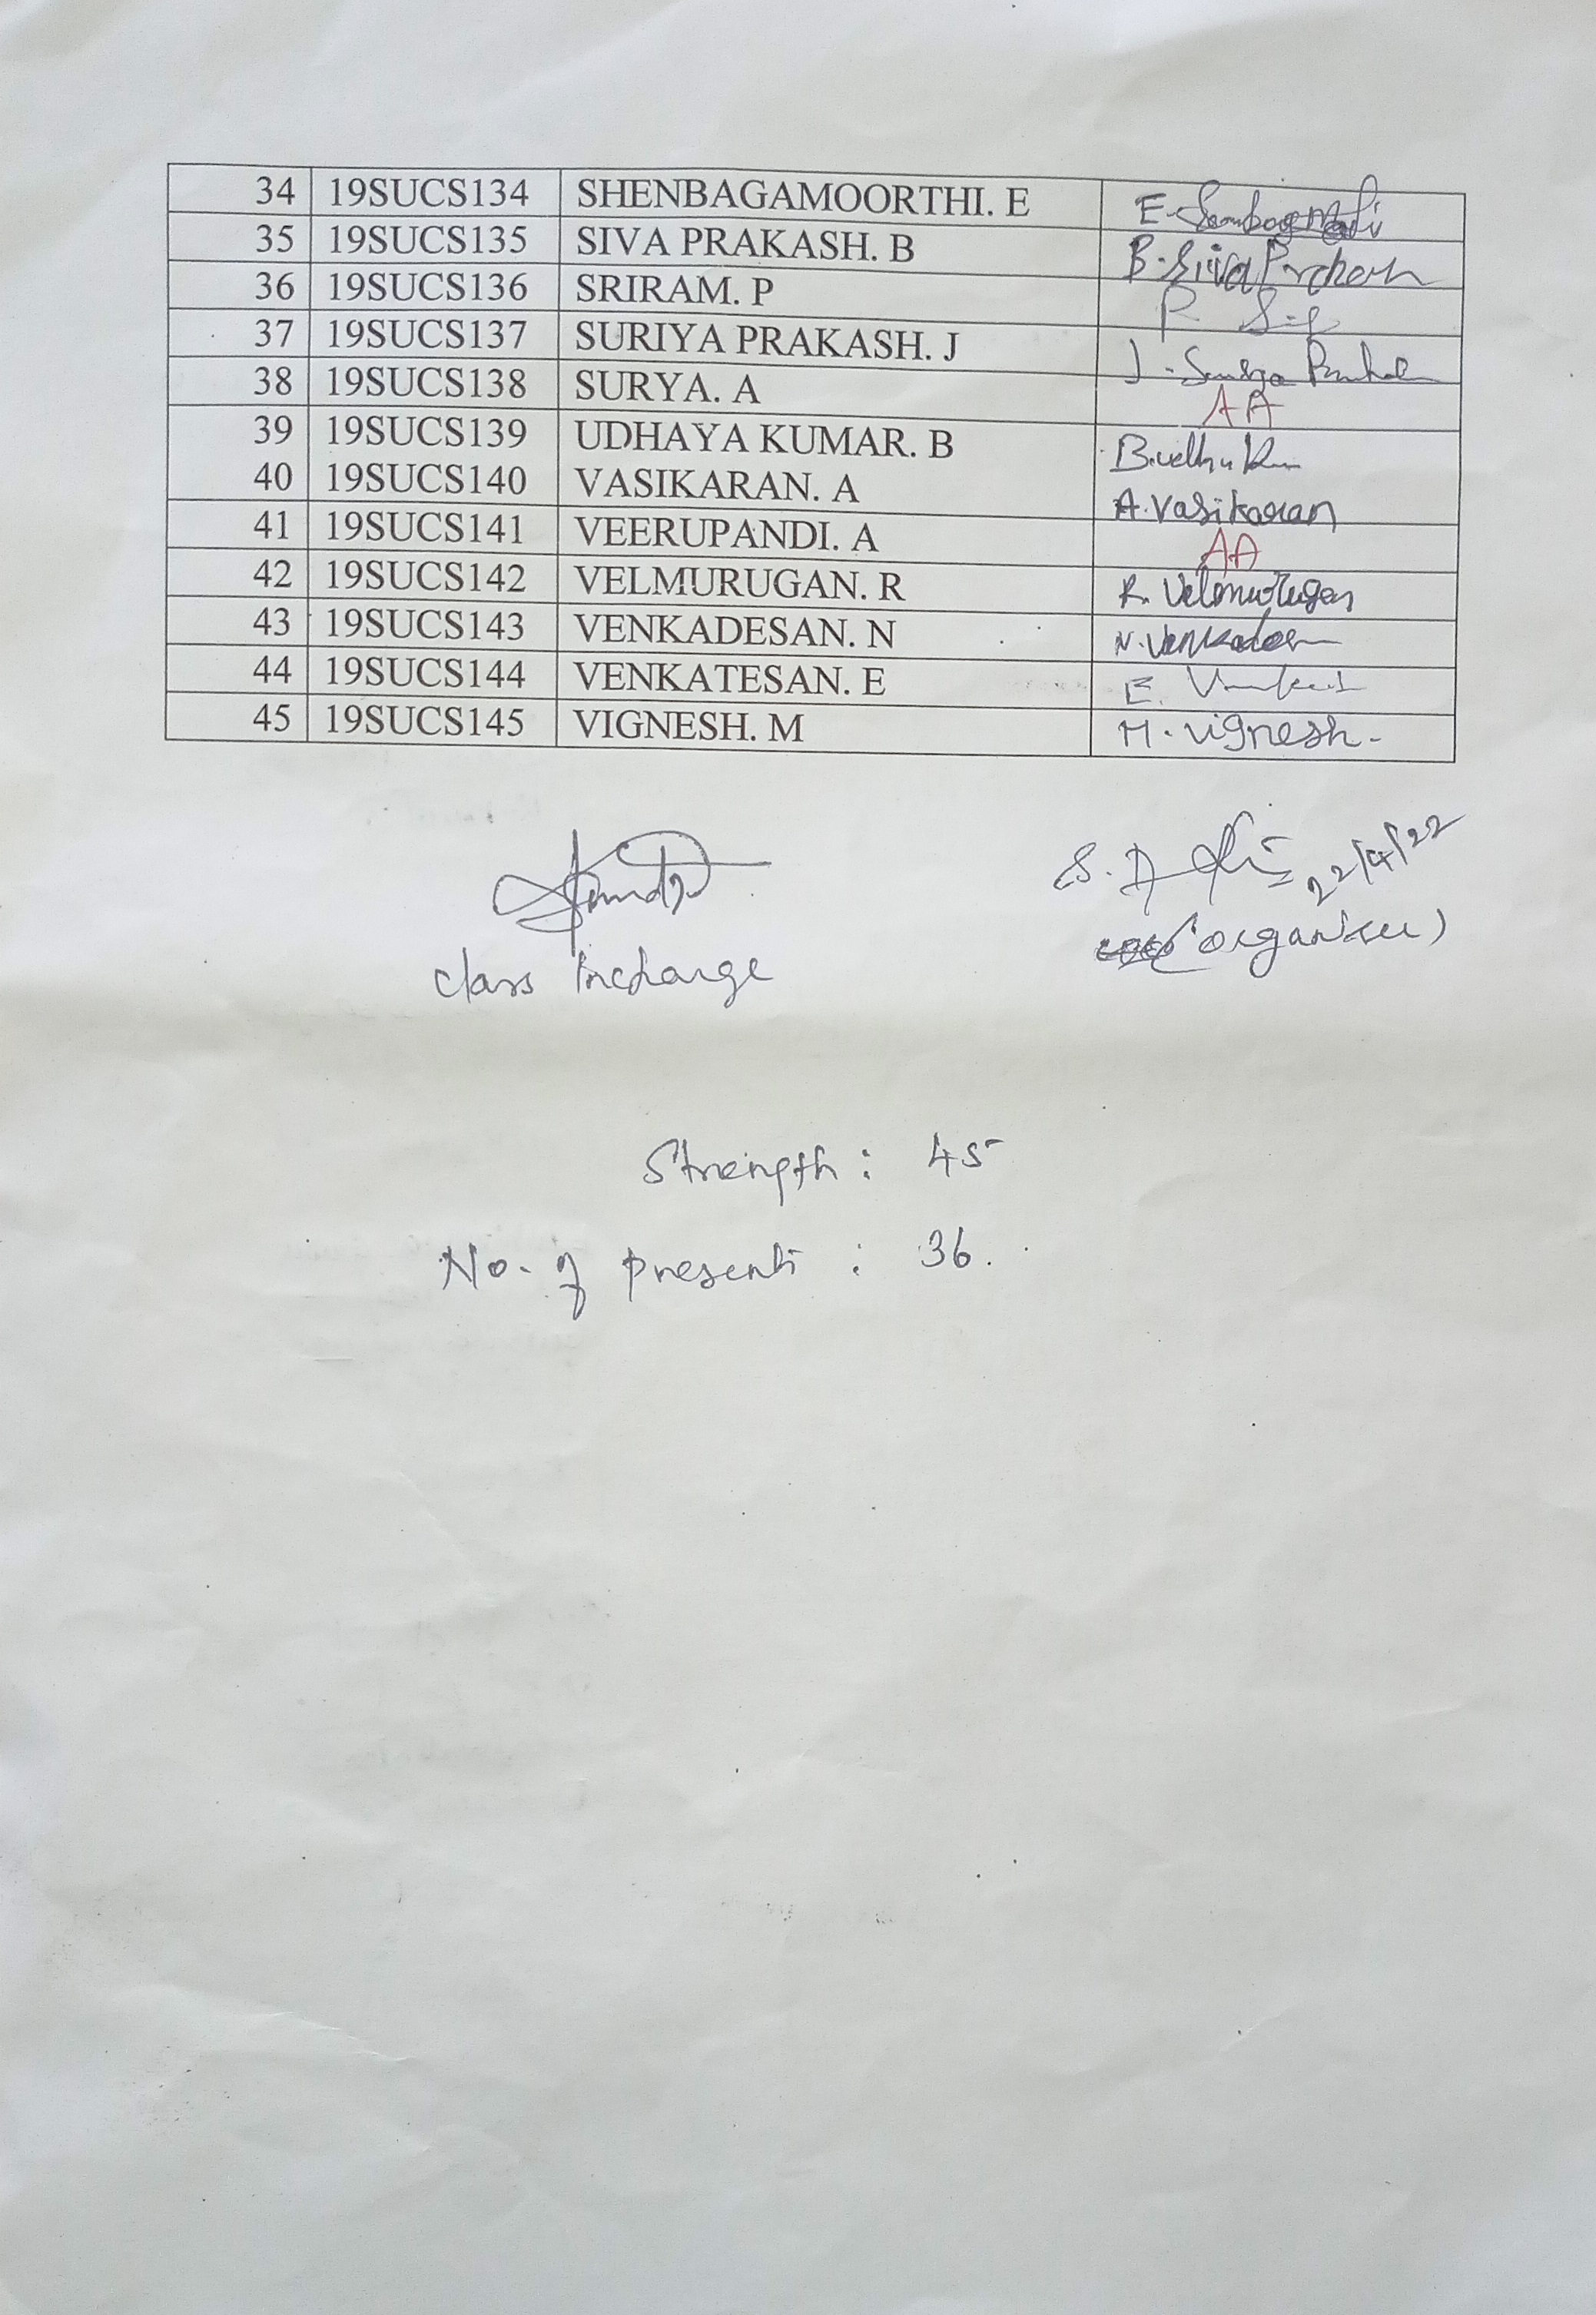 34 19SUCS134 SHENBAGAMOORTHI. E E.
35 19SUCS135 SIVA PRAKASH. B B. Siva Prakash
36 19SUCS136 SRIRAM. P P.
37 19SUCS137 SURIYA PRAKASH. J J.
38 19SUCS138 SURYA. A AA
39 19SUCS139 UDHAYA KUMAR. B
40 19SUCS140 VASIKARAN. A A. Vasikaran
41 19SUCS141 VEERUPANDI. A AA
42 19SUCS142 VELMURUGAN. R R. Velmurugan
43 19SUCS143 VENKADESAN. N N. Venkadesan
44 19SUCS144 VENKATESAN. E E.
45 19SUCS145 VIGNESH. M M. Vignesh.
22/4/22
class Incharge
(organiser)
Strength : 45
No. of present : 36.